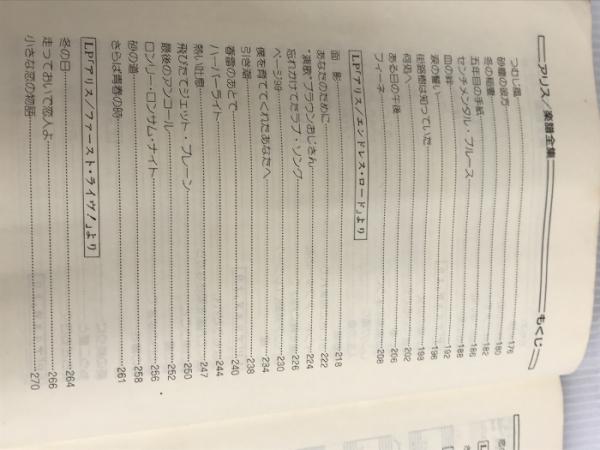 アリス/楽譜全集
もくじ
つむじ風 176
砂塵の彼方 180
冬の稲妻 182
五年目の手紙 186
センチメンタル・ブルース 188
血の絆 192
涙の誓い 196
街路樹は知っていた 198
何処へ 202
ある日の午後 206
フィナーネ 208
LP「アリス/エンドレス・ロード」より
面影 218
あなたのために 222
“演歌”ブラウンおじさん 224
忘れかけてたラブ・ソング 226
ページ99 230
僕を育ててくれたあなたへ 234
引き潮 238
春雷のあとで 240
ハーバーライト 244
熱い吐息 247
飛びたてジェット・プレーン 250
最後のアンコール 252
ロンリー・ロンサム・ナイト 256
砂の道 258
さらば青春の時 261
LP「アリス/ファースト・ライヴ!」より
冬の日 264
走っておいで恋人よ 266
小さな恋の物語 270